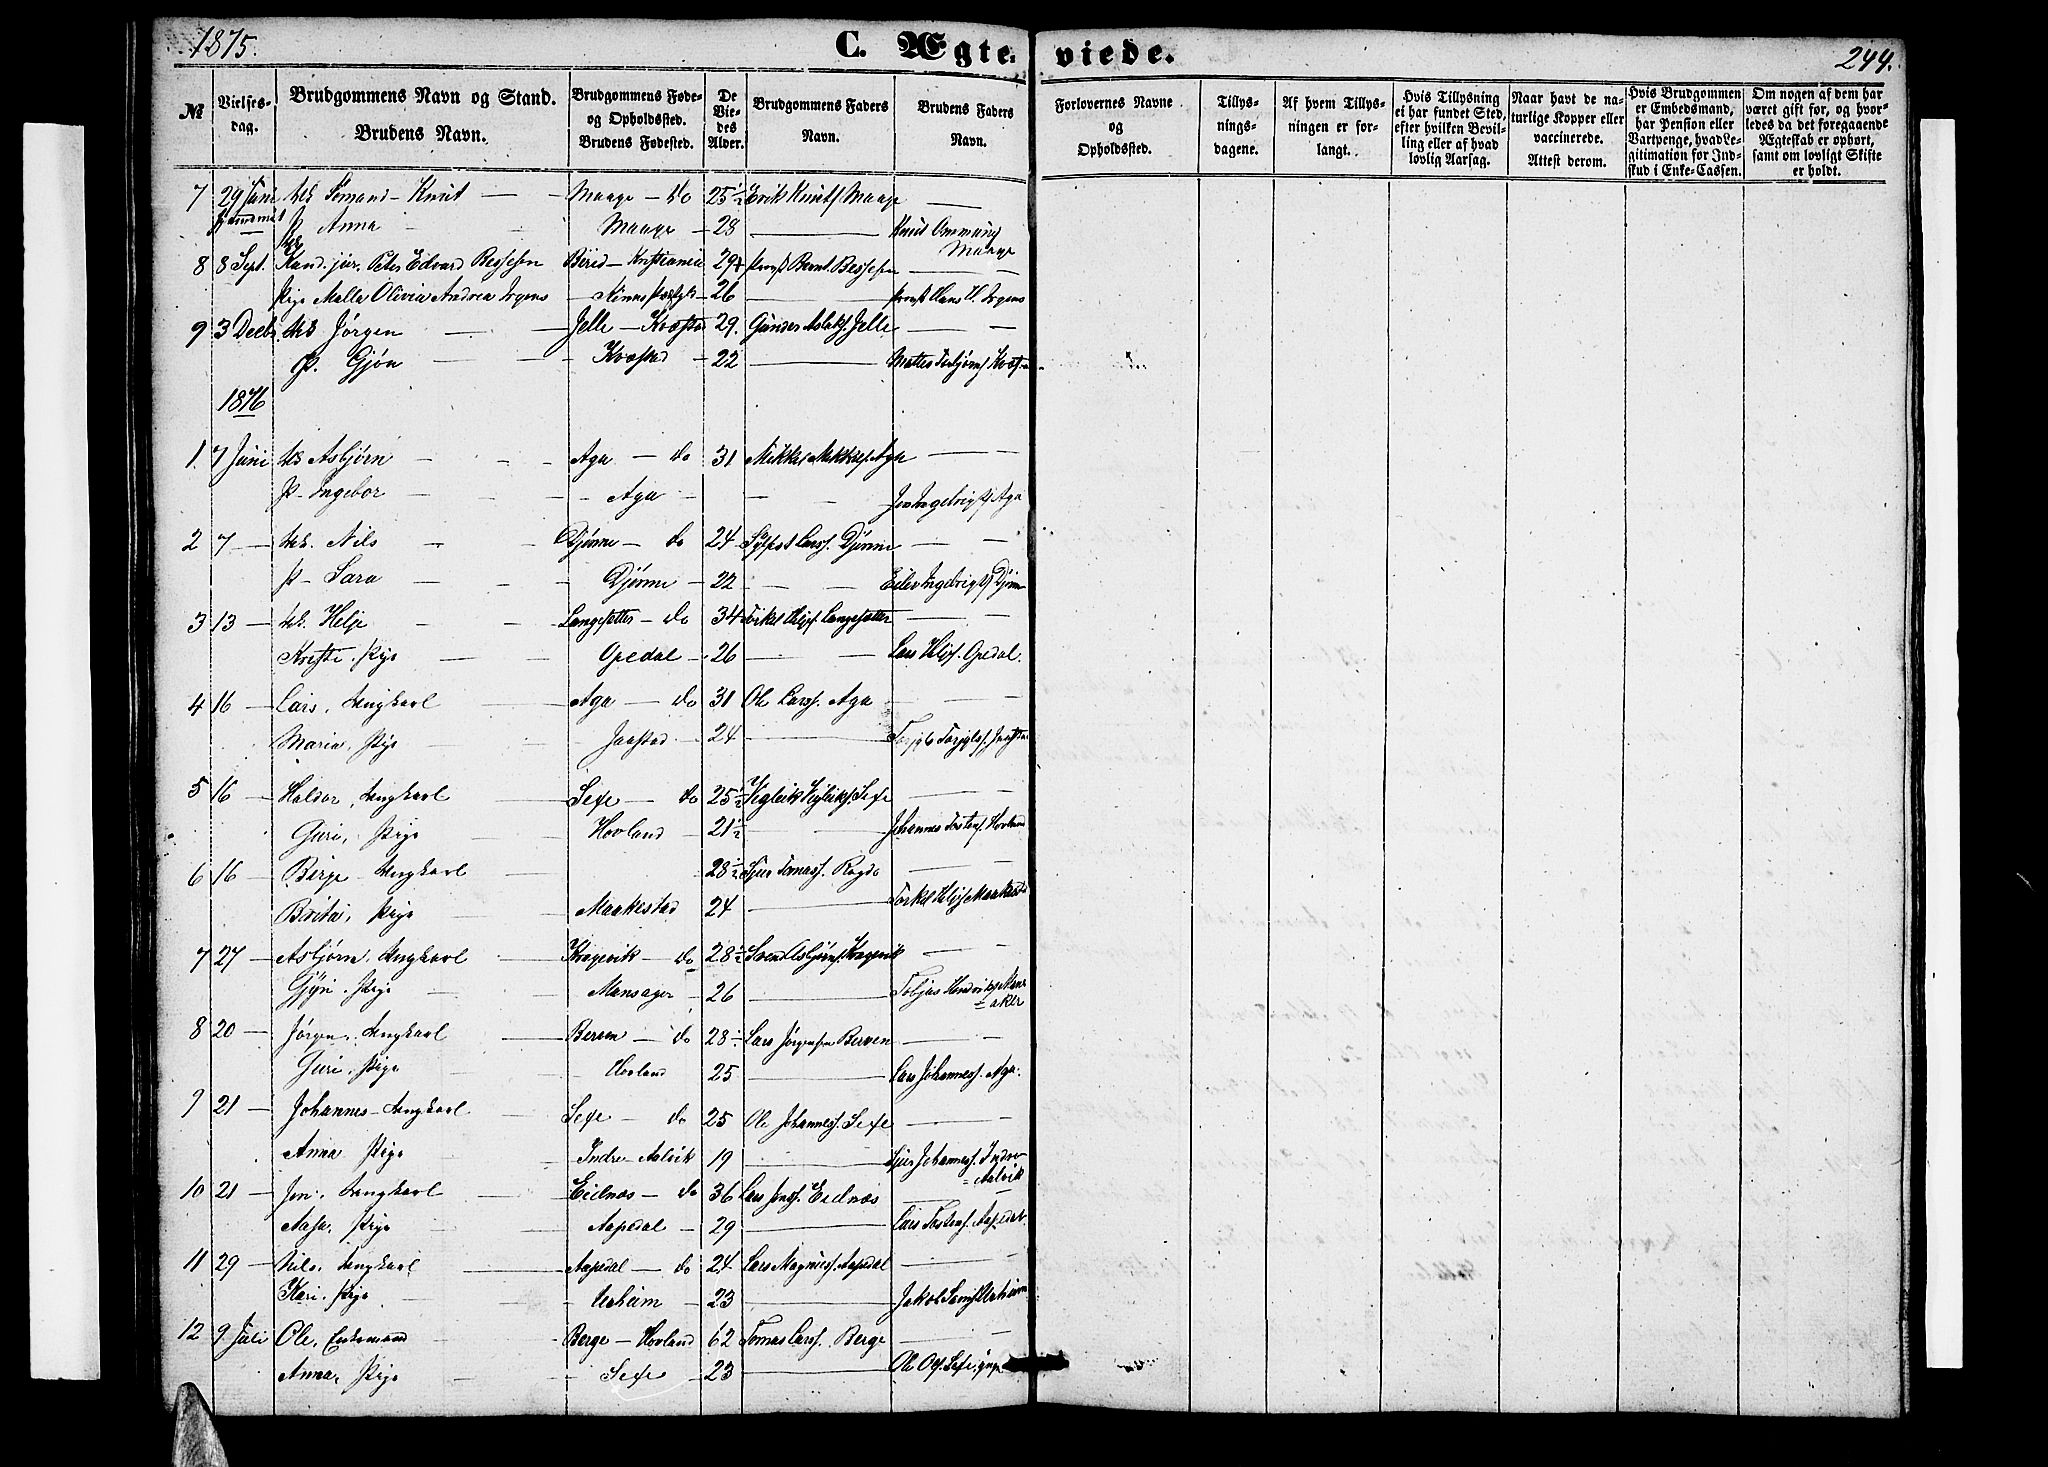 1875.
C. Ægte-
viede.
244.
№
Vielses-dag.
Brudgommens Navn og Stand.
Brudens Navn.
Brudgommens Føde- og Opholdssted.
Brudens Fødested.
De Vie-des Alder.
Brudgommens Faders Navn.
Brudens Faders Navn.
Forlovernes Navne og Opholdssted.
Tillys-nings-dagene.
Af hvem Tillys-ningen er for-langt.
Hvis Tillysning ei har fundet Sted, efter hvilken Bevil-ling eller af hvad lovlig Aarsag.
Naar havt de na-turlige Kopper eller vaccinerede.
Attest derom.
Hvis Brudgommen er Embedsmand, har Pension eller Vartpenge, hvad Le-gitimation for Ind-skud i Enke-Cassen.
Om nogen af dem har været gift før, og hvor-ledes da det foregaaende Ægteskab er ophørt, samt om lovligt Skifte er holdt.
7 29 Juni Sømand - Knut — Maage — do 25½ Erik Knuts. Maage —
P. Anna Maage — 28 — Knud Maage
8 8 Sept. Kand. jur. Peter Edvard Bessesen — Kristiania 29 Provst Bernt Bessesen —
Pige Malla Olivia Andrea Irgens — Kinns Præstgjd — 26 — Provst Hans H. Irgens
9 3 Decbr Jørgen — Jelle — Kvæstad 29. Gunder Aslaks. Jelle —
P. Gjøa — Kvæstad — 22 — Torbjørns. Kvæst
1876
1. 7 Juni Asbjørn — Aga — do 31 Mikkel Mikkels. Aga —
P - Ingebor — Aga — — Jon Ingebrigts. Aga
2 7 — Nils — Djønne — do 24 Lars. Djønne —
P - Sara — Djønne — 22 — Eilev Ingebrigts. Djønne
3 13 — Helje — Langesætter — do 34 Torkel Heljes. Langesætter —
Kristi. Pige — Opedal — 26 — Lars Heljes. Opedal.
4 16 — Lars, Ungkarl — Aga — do 31 Ole Larss. Aga —
Maria, Pige — Jaastad — 24 —
5 16 — Haldor, Ungkarl — Sexe — do 25½ Vigleik Vigleiks. Sexe —
Guri, Pige — Hovland — 21½ — Johannes Tostens. Hovland
6 16 — Børge Ungkarl 28½ Sjur Tomass. Ragde —
Brita, Pige — Maakestad 24 — Torkel Heljes. Maakestad
7 27 — Asbjørn, Ungkarl — Kragevik — do 28½ Svend Asbjørns. Kragevik —
Gjyri. Pige — Mansager — 26 — Tobias Hendriks. Mans
=aker
8 20 — Jørgen, Ungkarl — Berven — do 28½ Lars Jørgensen Berven —
Guri, Pige — Hovland 25 — Lars Johanness. Aga.
9 21 — Johannes - Ungkarl — Sexe — do 25 Ole Johanness. Sexe —
Anna Pige — Indre Aalvik 19 — Sjur Johanness. Indre
=Aalvik
10 21 — Jon, Ungkarl — Eidnæs — do 36 Lars Jons. Eidnæs —
Aasa, Pige — Aapedal — 29 — Lars Tostens. Aapedal.
11 29 — Nils, Ungkarl — Aapedal — do 24 Lars Magness. Aapedal —
Kari, Pige — Urheim — 23 — Jakob Urheim
12 9 Juli Ole, Enkemand — Berge — Hovland 62 Tomas Larss. Berge —
Anna, Pige — Sexe — 23 — Ole Ols. Sexe,